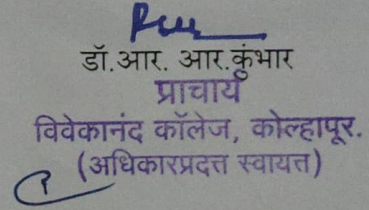 डॉ.आर. आर.कुंभार
प्राचार्य
विवेकानंद कॉलेज, कोल्हापूर.
(अधिकारप्रदत्त स्वायत्त)